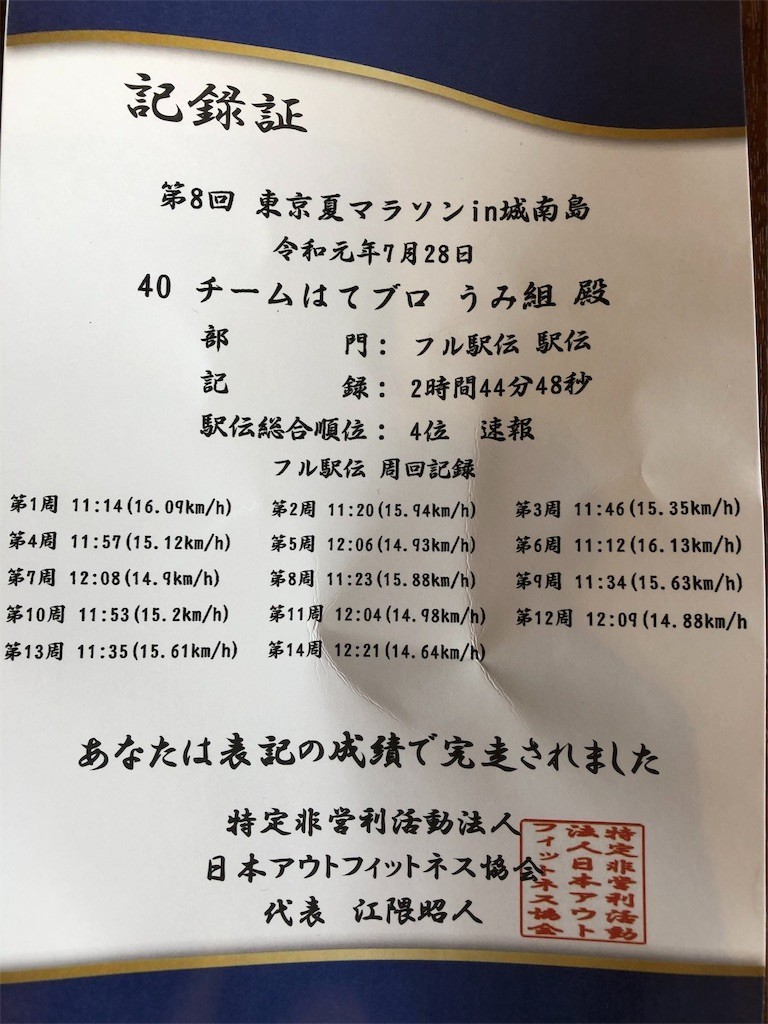 記録証
第8回 東京夏マラソンin城南島
令和元年7月28日
40 チームはてブロ うみ組 殿
部　　　門： フル駅伝 駅伝
記　　　録： 2時間44分48秒
駅伝総合順位： 4位　速報
フル駅伝 周回記録
第1周 11:14(16.09km/h) 第2周 11:20(15.94km/h) 第3周 11:46(15.35km/h)
第4周 11:57(15.12km/h) 第5周 12:06(14.93km/h) 第6周 11:12(16.13km/h)
第7周 12:08(14.9km/h) 第8周 11:23(15.88km/h) 第9周 11:34(15.63km/h)
第10周 11:53(15.2km/h) 第11周 12:04(14.98km/h) 第12周 12:09(14.88km/h
第13周 11:35(15.61km/h) 第14周 12:21(14.64km/h)
あなたは表記の成績で完走されました
特定非営利活動法人
日本アウトフィットネス協会
代表　江隈昭人
特定非営利活動
法人日本アウト
フィットネス協会